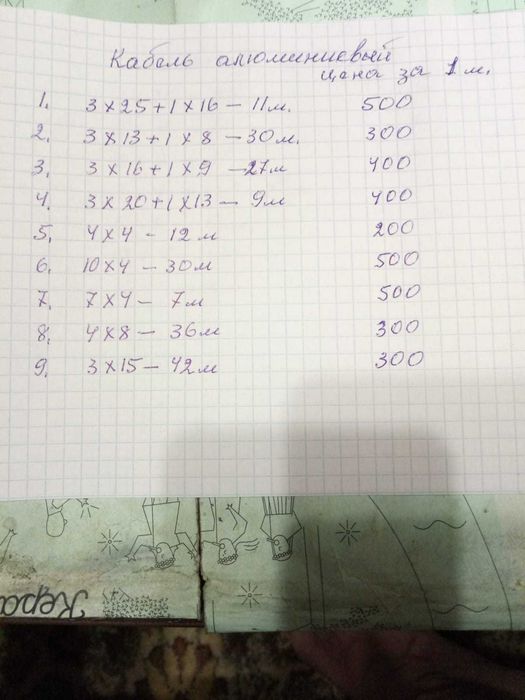 Кабель алюминиевый
цена за 1 м.
1. 3 х 25 + 1 х 16 – 11 м. 500
2. 3 х 13 + 1 х 8 – 30 м. 300
3. 3 х 16 + 1 х 9 – 27 м 400
4. 3 х 20 + 1 х 13 – 9 м 400
5. 4 х 4 – 12 м 200
6. 10 х 4 – 30 м 500
7. 7 х 4 – 7 м 500
8. 4 х 8 – 36 м 300
9. 3 х 15 – 42 м 300
Кера